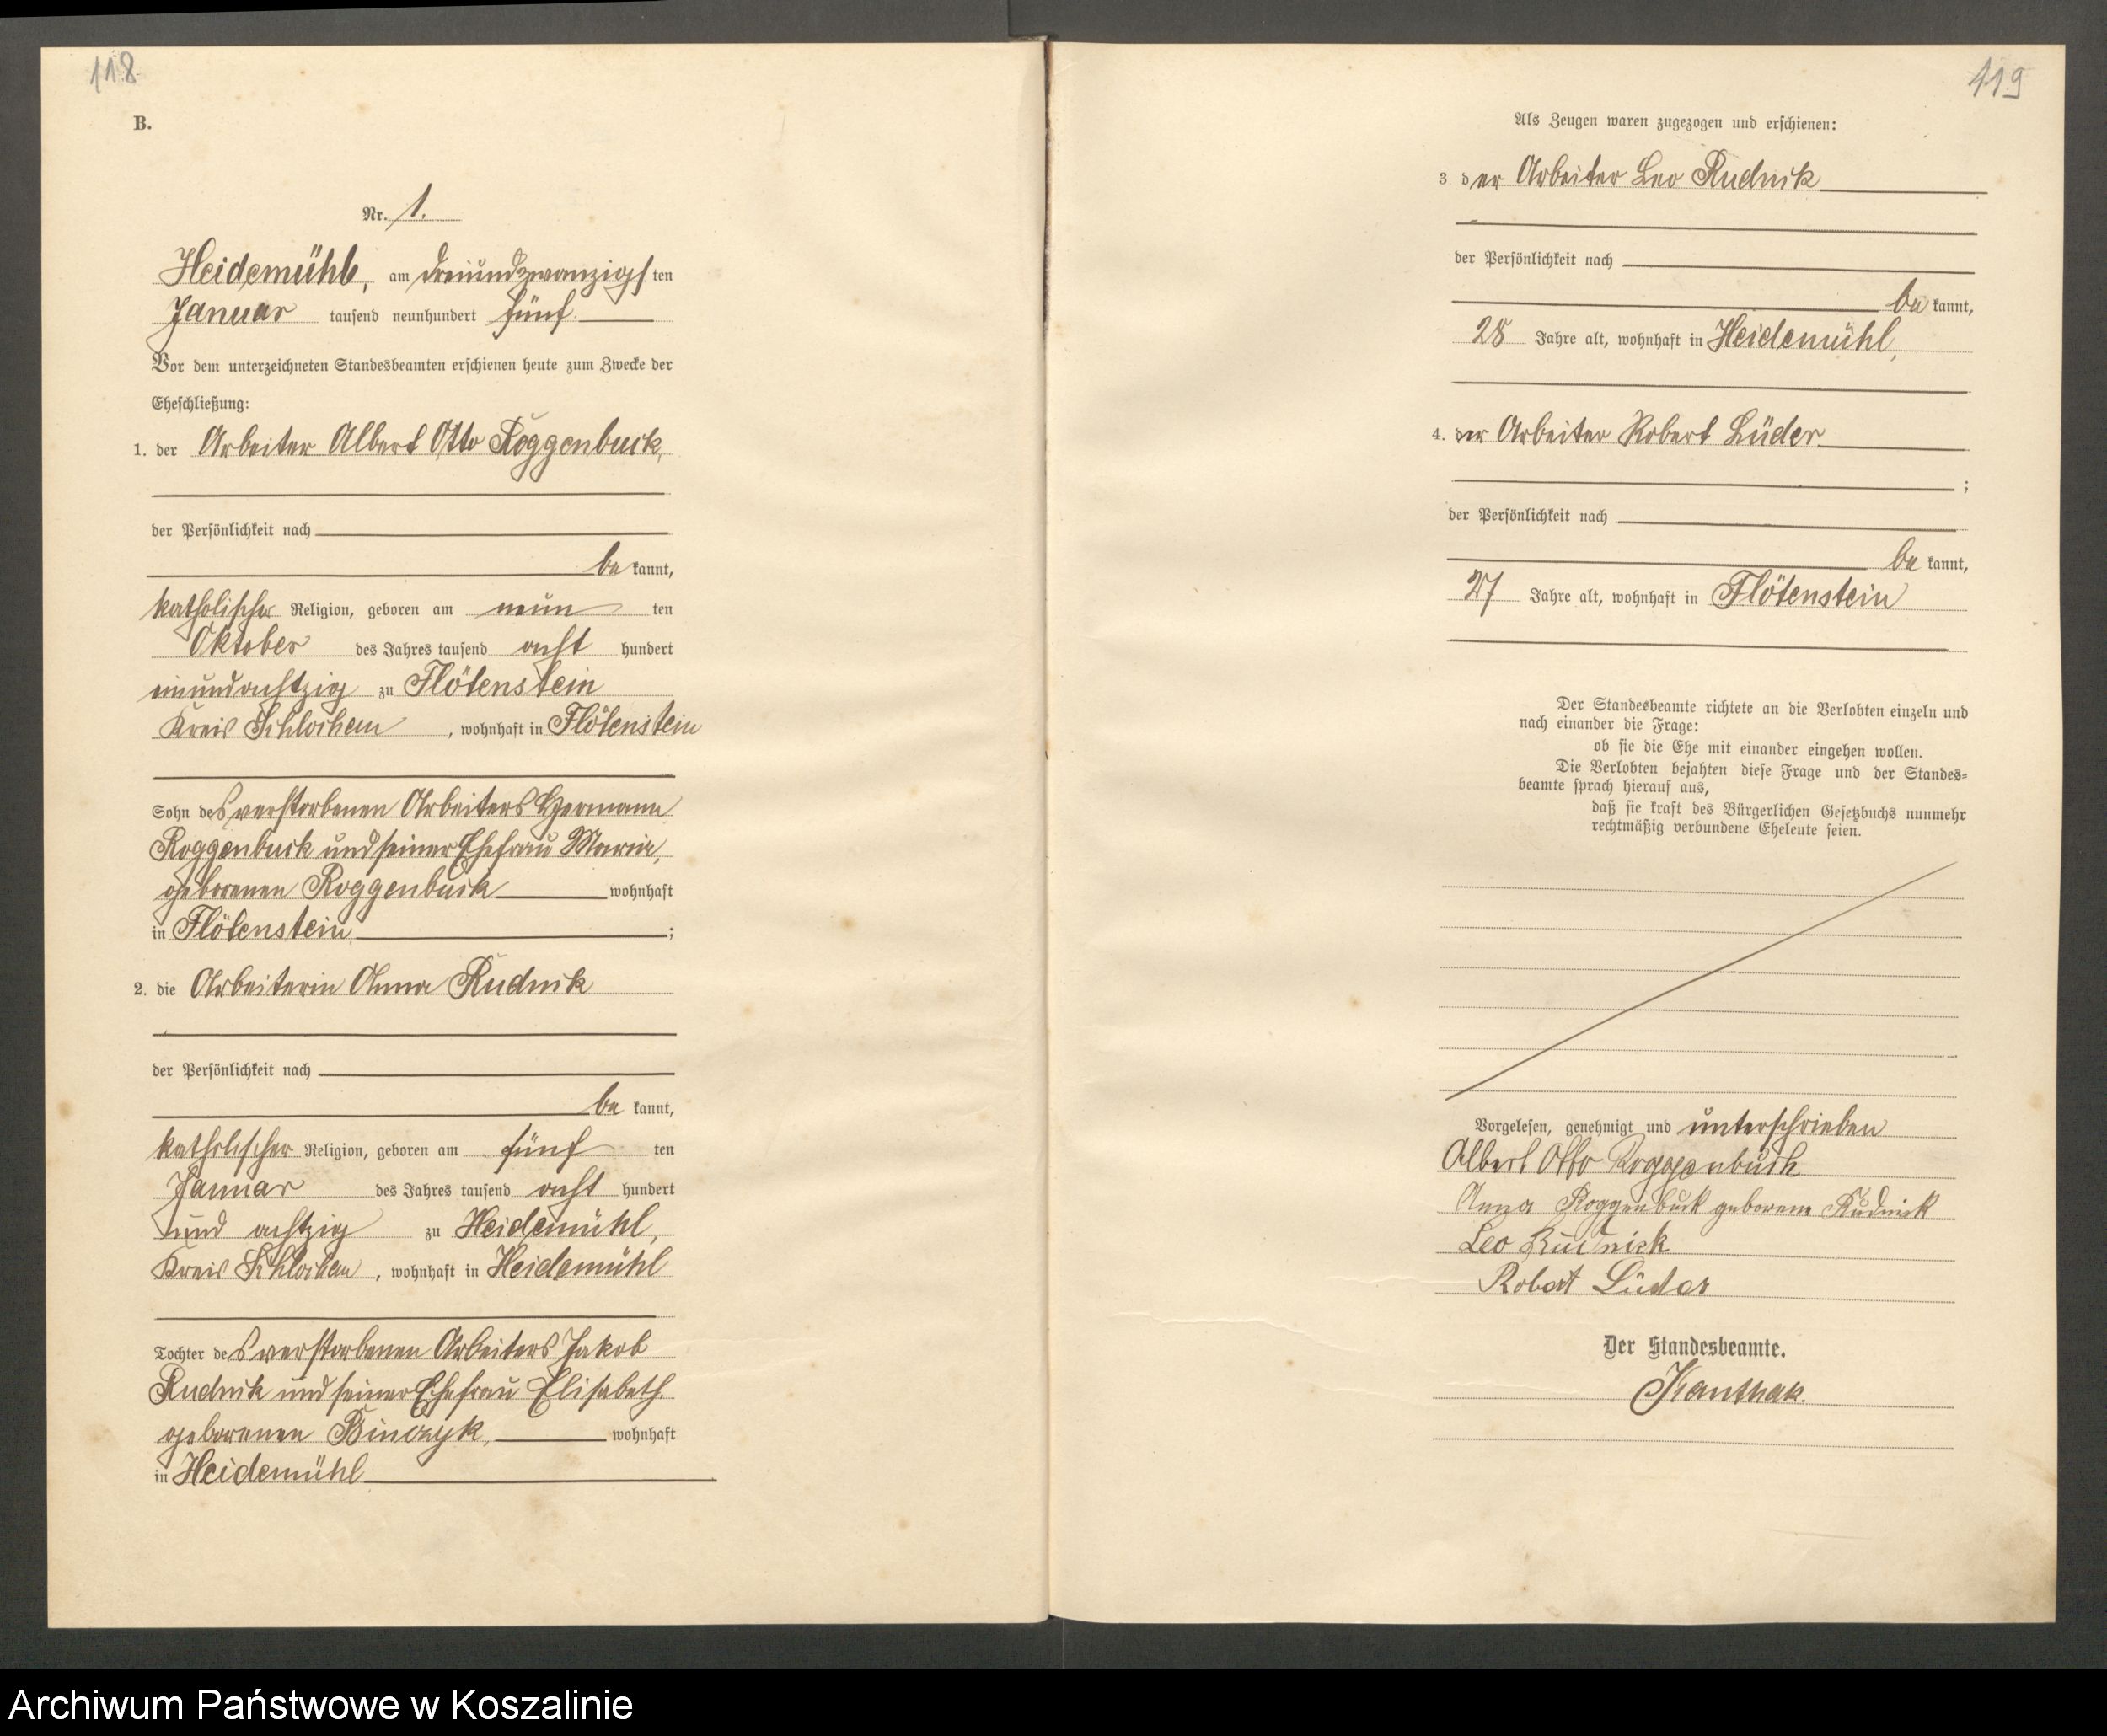 118
B.
Nr. 1.
Heidemühl, am dreiundzwanzigsten
Januar tausend neunhundert fünf
Vor dem unterzeichneten Standesbeamten erschienen heute zum Zwecke der
Eheschließung:
1. der Arbeiter Albert Otto Roggenbuck,
der Persönlichkeit nach
bekannt,
katholischer Religion, geboren am neunten
Oktober des Jahres tausend achthundert
einundachtzig zu Flötenstein
Kreis Schlochau, wohnhaft in Flötenstein
Sohn des verstorbenen Arbeiters Hermann
Roggenbuck und seiner Ehefrau Maria,
geborenen Roggenbuck wohnhaft
in Flötenstein;
2. die Arbeiterin Anna Rudnik
der Persönlichkeit nach
bekannt,
katholischer Religion, geboren am fünften
Januar des Jahres tausend achthundert
und achtzig zu Heidemühl,
Kreis Schlochau, wohnhaft in Heidemühl
Tochter des verstorbenen Arbeiters Jakob
Rudnik und seiner Ehefrau Elisabeth
geborenen Binczyk, wohnhaft
in Heidemühl
119
Als Zeugen waren zugezogen und erschienen:
3. der Arbeiter Leo Rudnik
der Persönlichkeit nach
bekannt,
28 Jahre alt, wohnhaft in Heidemühl,
4. der Arbeiter Robert Lüder
;
der Persönlichkeit nach
bekannt,
27 Jahre alt, wohnhaft in Flötenstein
Der Standesbeamte richtete an die Verlobten einzeln und
nach einander die Frage:
ob sie die Ehe mit einander eingehen wollen.
Die Verlobten bejahten diese Frage und der Standes-
beamte sprach hierauf aus,
daß sie kraft des Bürgerlichen Gesetzbuchs nunmehr
rechtmäßig verbundene Eheleute seien.
Vorgelesen, genehmigt und unterschrieben
Albert Otto Roggenbuck
Anna Roggenbuck geborene Rudnick
Leo Rudnick
Robert Lüder
Der Standesbeamte.
Kanthak.
Archiwum Państwowe w Koszalinie